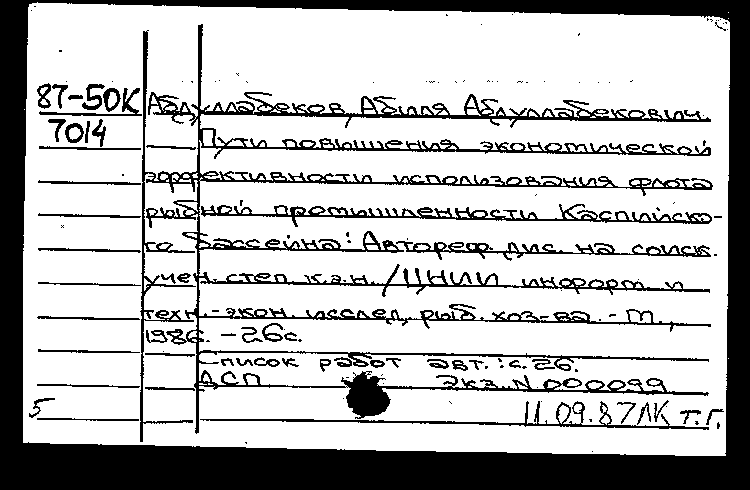 87-50К Абдуллабеков, Абиля Абдуллабекович.
7014 Пути повышения экономической
эффективности использования флота
рыбной промышленности Каспийско-
го бассейна: Автореф. дис. на соиск.
учен. степ. к.э.н. /ЦНИИ информ. и
техн.-экон. исслед. рыб. хоз-ва. - М.,
1986. - 26с.
Список работ авт.: с. 26.
ДСП Экз. N 000099
5 11.09.87 ЛК т.г.